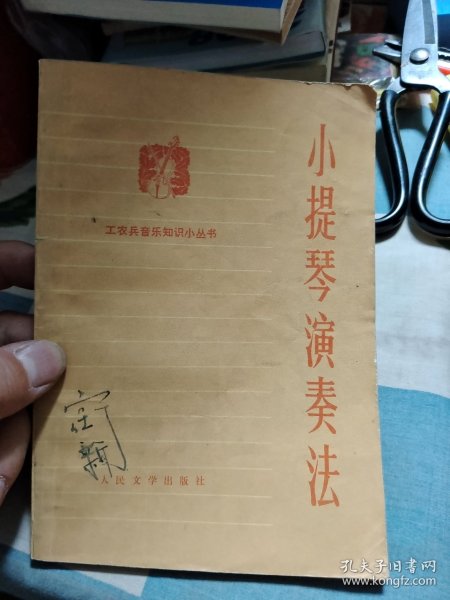 小提琴演奏法
工农兵音乐知识小丛书
人民文学出版社
孔夫子旧书网
www.kongfz.com